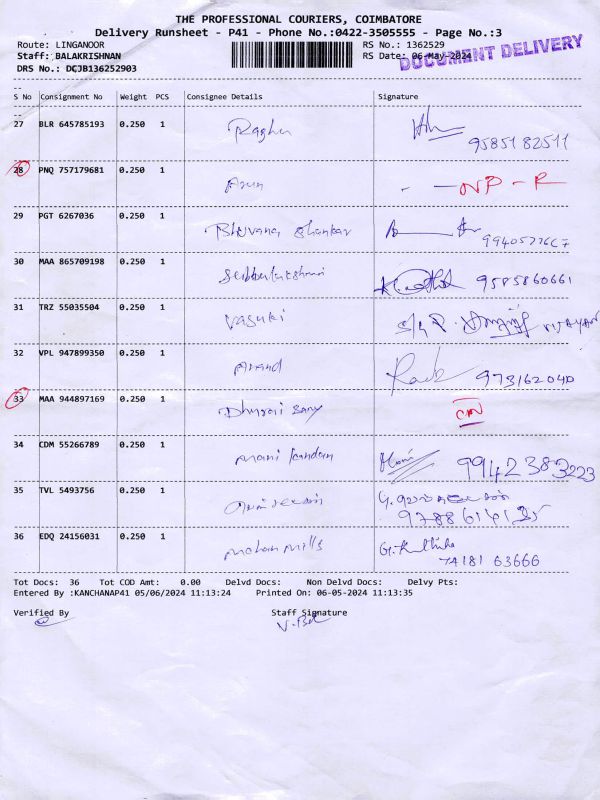 THE PROFESSIONAL COURIERS, COIMBATORE
Delivery Runsheet - P41 - Phone No.:0422-3505555 - Page No.:3
Route: LINGANOOR RS No.: 1362529
Staff: BALAKRISHNAN RS Date: 06-May-2024
DOCUMENT DELIVERY
DRS No.: DCJB136252903
S No Consignment No Weight PCS Consignee Details Signature
27 BLR 645785193 0.250 1 Raghu
9585182511
28 PNQ 757179681 0.250 1 Arun - - NP - R
29 PGT 6267036 0.250 1 Bhuvana Shankar
30 MAA 865709198 0.250 1 9585860661
31 TRZ 55035504 0.250 1 Vasuki VIJAYAN
32 VPL 947899350 0.250 1 Anand
973162040
33 MAA 944897169 0.250 1 Dhurai Samy
34 CDM 55266789 0.250 1 Mani kandan Mani 9942383223
35 TVL 5493756 0.250 1
36 EDQ 24156031 0.250 1 Mohan Mills
74181 63666
Tot Docs: 36 Tot COD Amt: 0.00 Delvd Docs: Non Delvd Docs: Delvy Pts:
Entered By :KANCHANAP41 05/06/2024 11:13:24 Printed On: 06-05-2024 11:13:35
Verified By Staff Signature